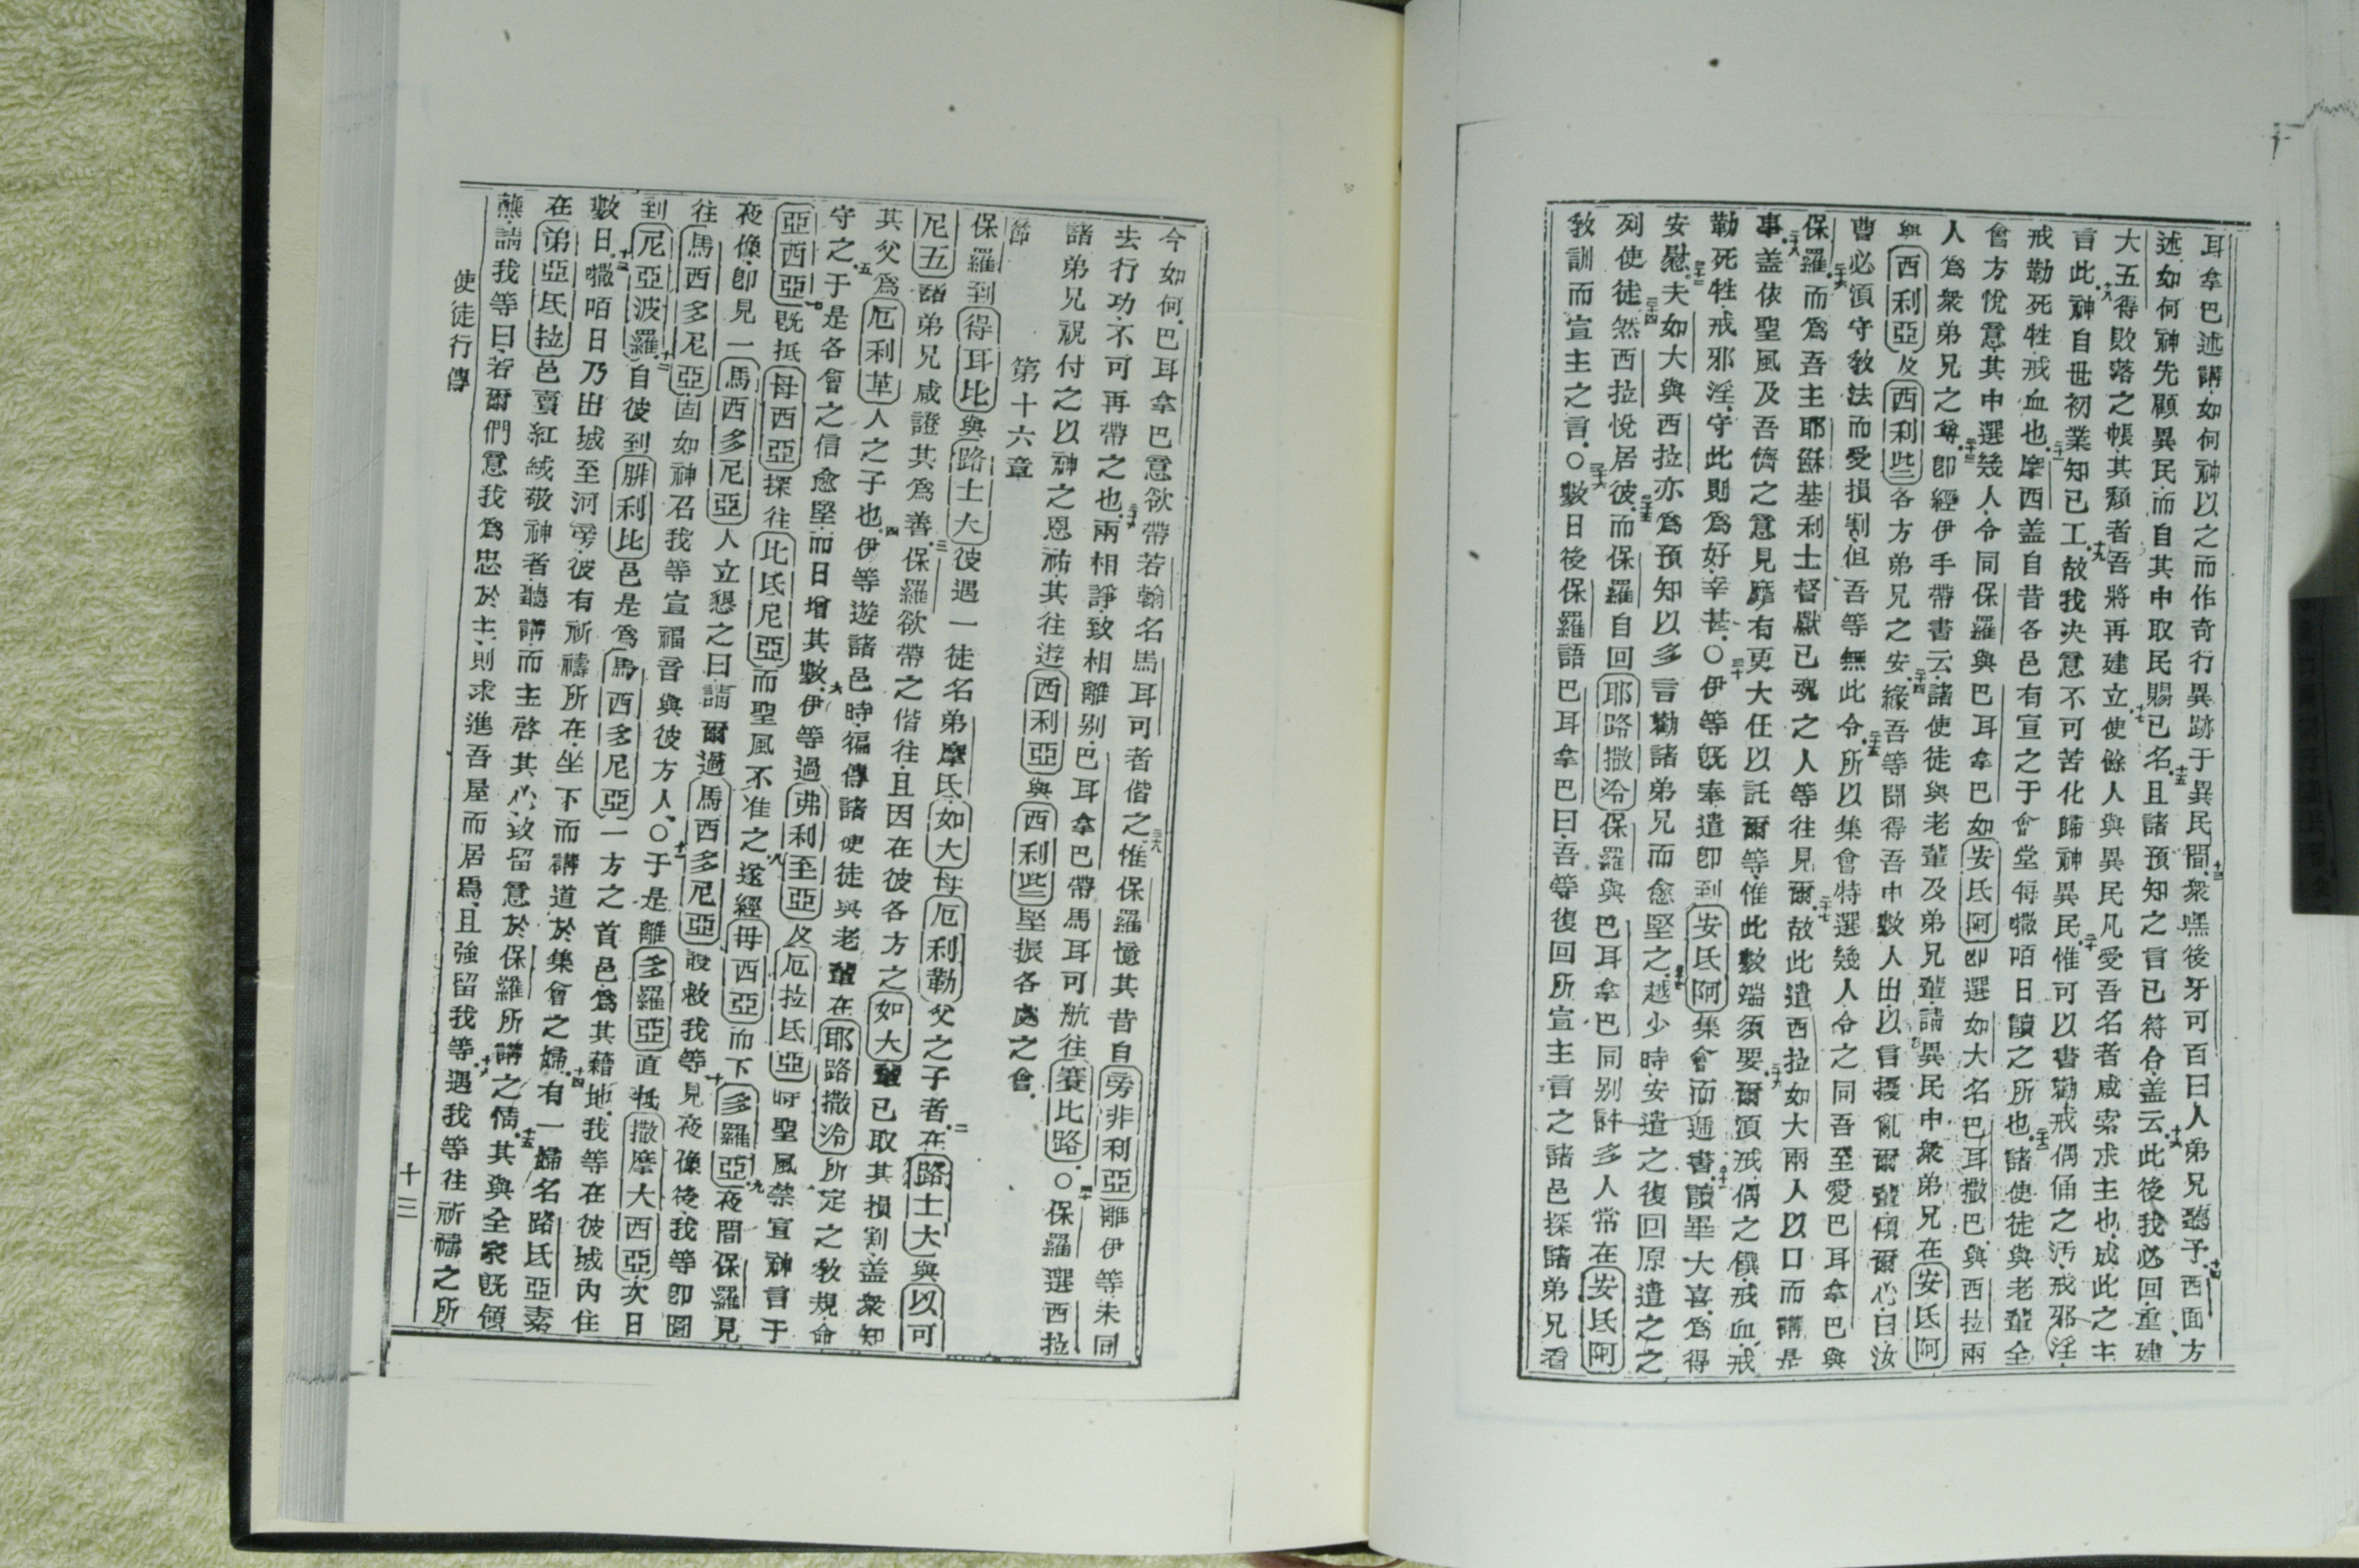 耳拿巴述講如何神以之而作奇行異跡于異民間十三衆嘿後牙可百曰人弟兄聽予十四西面方
述如何神先顧異民而自其中取民賜己名十五且諸預知之言已符合蓋云十六此後我必回重建
大五得敗落之帳其頹者吾將再建立十七使餘人與異民凡受吾名者咸索求主也成此之主
言此十八神自世初業知己工十九故我決意不可苦化歸神異民二十惟可以書勸戒偶俑之污戒邪淫
戒勒死牲戒血也二十一摩西蓋自昔各邑有宣之于會堂每𭡠咟日讀之所也二十二諸使徒與老輩全
會方悅意其中選幾人令同保羅與巴耳拿巴如安氐阿卽選如大名巴耳撒巴與西拉兩
人爲衆弟兄之尊二十三卽經伊手帶書云諸使徒與老輩及弟兄輩請異民中衆弟兄在安氐阿
與西利亞及西利些各方弟兄之安二十四緣吾等聞得吾中數人出以言擾亂爾輩傾爾心曰汝
曹必須守敎法而受損割但吾等無此令二十五所以集會特選幾人令之同吾至愛巴耳拿巴與
保羅二十六而爲吾主耶穌基利士督獻己魂之人等往見爾二十七故此遣西拉如大兩人以口而講是
事二十八蓋依聖風及吾儕之意見靡有更大任以託爾等惟此數端須要二十九爾須戒偶之饌戒血戒
勒死牲戒邪淫守此則爲好幸甚〇三十伊等旣奉遣卽到安氐阿集會而遞書三十一讀畢大喜爲得
安慰三十二夫如大與西拉亦爲預知以多言勸諸弟兄而愈堅之三十三越少時安遣之復回原遣之之
列使徒三十四然西拉悅居彼三十五而保羅自回耶路撒冷保羅與巴耳拿巴同别許多人常在安氐阿
敎訓而宣主之言〇三十六數日後保羅語巴耳拿巴曰吾等復回所宣主言之諸邑探諸弟兄看
今如何巴耳拿巴意欲帶若翰名馬耳可者偕之三十八惟保羅憶其昔自旁非利亞離伊等未同
去行功不可再帶之也三十九兩相諍致相離别巴耳拿巴帶馬耳可航往賽比路〇四十保羅選西拉
諸弟兄祝付之以神之恩祐其往遊西利亞與西利些堅振各處之會
節　第十六章
保羅到得耳比與路士大彼遇一徒名弟摩氐如大母厄利勒父之子者二在路士大與以可
尼五諸弟兄咸證其爲善三保羅欲帶之偕往且因在彼各方之如大輩已取其損割蓋衆知
其父爲厄利革人之子也四伊等遊諸邑時徧傳諸使徒與老輩在耶路撒冷所定之敎規命
守之五于是各會之信愈堅而日增其數六伊等過弗利至亞及厄拉氐亞時聖風禁宣神言于
亞西亞七旣抵母西亞探往比氐尼亞而聖風不准之八遂經母西亞而下多羅亞九夜間保羅見
夜像卽見一馬西多尼亞人立懇之曰請爾過馬西多尼亞設救我等十見夜像後我等卽圖
往馬西多尼亞固如神召我等宣福音與彼方人〇十一于是離多羅亞直抵撒摩大西亞次日
到尼亞波羅十二自彼到腓利比邑是爲馬西多尼亞一方之首邑爲其藉地我等在彼城內住
數日十三𭡠咟日乃出城至河旁彼有祈禱所在坐下而講道於集會之婦十四有一婦名路氐亞素
在弟亞氐拉邑賣紅絨敬神者聽講而主啓其心致留意於保羅所講之情十五其與全家旣領
蘸請我等曰若爾們意我爲忠於主則求進吾屋而居焉且強留我等十六遇我等往祈禱之所
使徒行傳　十三